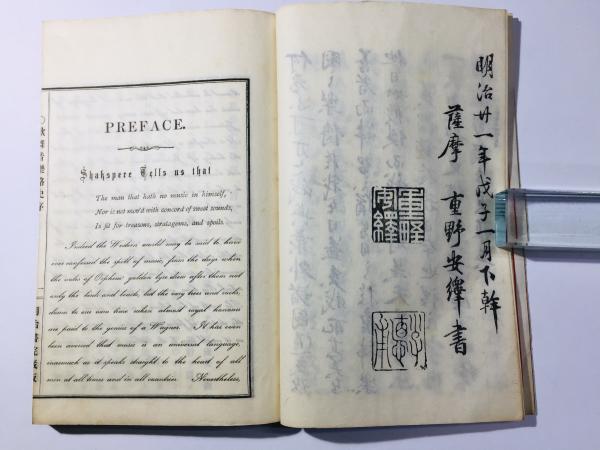 明治廿一年戊子一月下澣
薩摩 重野安繹書
重野
安繹
PREFACE.
Shakspere Tells us that
The man that hath no music in himself,
Nor is not mov'd with concord of sweet sounds,
Is fit for treasons, stratagems, and spoils.
Indeed the Western world may be said to have
ever confessed the spell of music, from the days when
the notes of Orpheus' golden lyre drew after them not
only the birds and beasts, but the very trees and rocks,
down to our own time when almost royal honours
are paid to the genius of a Wagner. It has even
been averred that music is an universal language,
inasmuch as it speaks straight to the heart of all
men at all times and in all countries. Nevertheless,
〇歌舞音樂略史序